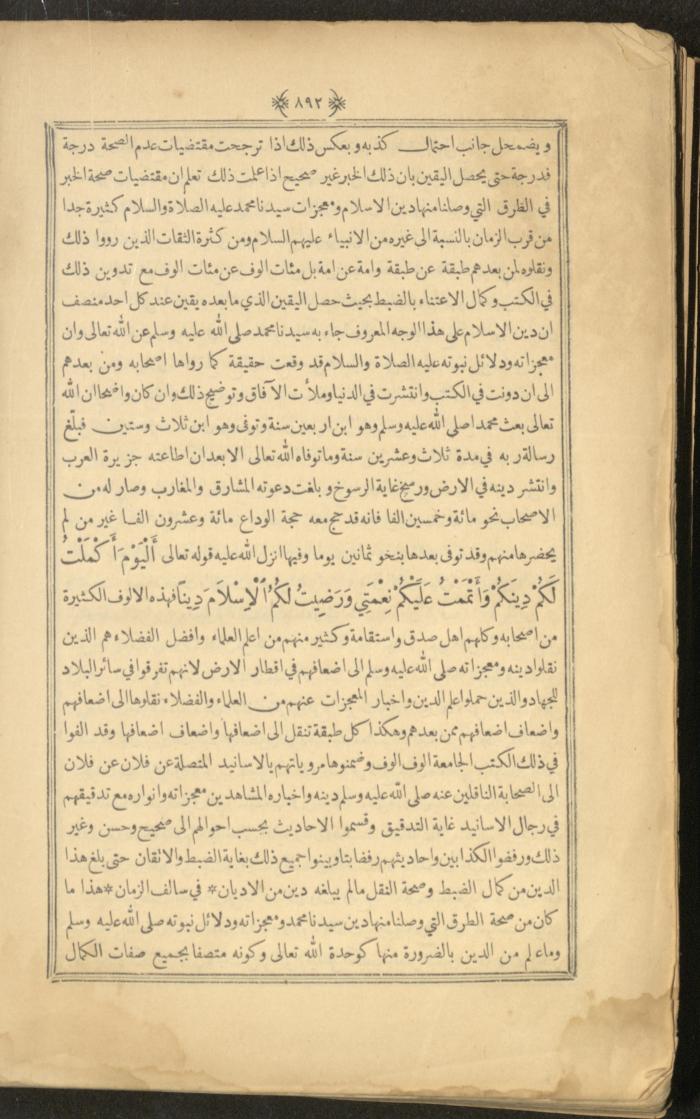 ٨٩٢
ويضمحل جانب احتمال كذبه وبعكس ذلك اذا ترجحت مقتضيات عدم الصحة درجة
فدرجة حتى يحصل اليقين بان ذلك الخبر غير صحيح اذا علمت ذلك تعلم ان مقتضيات صحة الخبر
في الطرق التي وصلنا منها دين الاسلام ومعجزات سيدنا محمد عليه الصلاة والسلام كثيرة جدا
من قرب الزمان بالنسبة الى غيره من الانبياء عليهم السلام ومن كثرة الثقات الذين رووا ذلك
ونقلوه لمن بعدهم طبقة عن طبقة وامة عن امة بل مئات الوف عن مئات الوف مع تدوين ذلك
في الكتب وكمال الاعتناء بالضبط بحيث حصل اليقين الذي ما بعده يقين عند كل احد منصف
ان دين الاسلام على هذا الوجه المعروف جاء به سيدنا محمد صلى الله عليه وسلم عن الله تعالى وان
معجزاته ودلائل نبوته عليه الصلاة والسلام قد وقعت حقيقة كما رواها اصحابه ومن بعدهم
الى ان دونت في الكتب وانتشرت في الدنيا وملأت الآفاق وتوضيح ذلك وان كان واضحا ان الله
تعالى بعث محمدا صلى الله عليه وسلم وهو ابن اربعين سنة وتوفي وهو ابن ثلاث وستين فبلغ
رسالة ربه في مدة ثلاث وعشرين سنة وما توفاه الله تعالى الا بعد ان اطاعته جزيرة العرب
وانتشر دينه في الارض ورسخ غاية الرسوخ وبلغت دعوته المشارق والمغارب وصار له من
الاصحاب نحو مائة وخمسين الفا فانه قد حج معه حجة الوداع مائة وعشرون الفا غير من لم
يحضرها منهم وقد توفي بعدها بنحو ثمانين يوما وفيها انزل الله عليه قوله تعالى أَلْيَوْمَ أَكْمَلْتُ
لَكُمْ دِينَكُمْ وَأَتْمَمْتُ عَلَيْكُمْ نِعْمَتِي وَرَضِيتُ لَكُمُ ٱلْإِسْلَامَ دِينًا فهذه الالوف الكثيرة
من اصحابه وكلهم اهل صدق واستقامة وكثير منهم من اعلم العلماء وافضل الفضلاء هم الذين
نقلوا دينه ومعجزاته صلى الله عليه وسلم الى اضعافهم في اقطار الارض لانهم تفرقوا في سائر البلاد
للجهاد والذين حملوا علم الدين واخبار المعجزات عنهم من العلماء والفضلاء نقلوها الى اضعافهم
واضعاف اضعافهم ممن بعدهم وهكذا كل طبقة تنقل الى اضعافها واضعاف اضعافها وقد الفوا
في ذلك الكتب الجامعة الوف الوف وضمنوها مروياتهم بالاسانيد المتصلة عن فلان عن فلان
الى الصحابة الناقلين عنه صلى الله عليه وسلم دينه واخباره المشاهدين معجزاته وانواره مع تدقيقهم
في رجال الاسانيد غاية التدقيق وقسموا الاحاديث بحسب احوالهم الى صحيح وحسن وغير
ذلك ورفضوا الكذابين واحاديثهم رفضا بتا وبينوا جميع ذلك بغاية الضبط والاتقان حتى بلغ هذا
الدين من كمال الضبط وصحة النقل ما لم يبلغه دين من الاديان * في سالف الزمان * هذا ما
كان من صحة الطرق التي وصلنا منها دين سيدنا محمد ومعجزاته ودلائل نبوته صلى الله عليه وسلم
وما علم من الدين بالضرورة منها كوحدة الله تعالى وكونه متصفا بجميع صفات الكمال